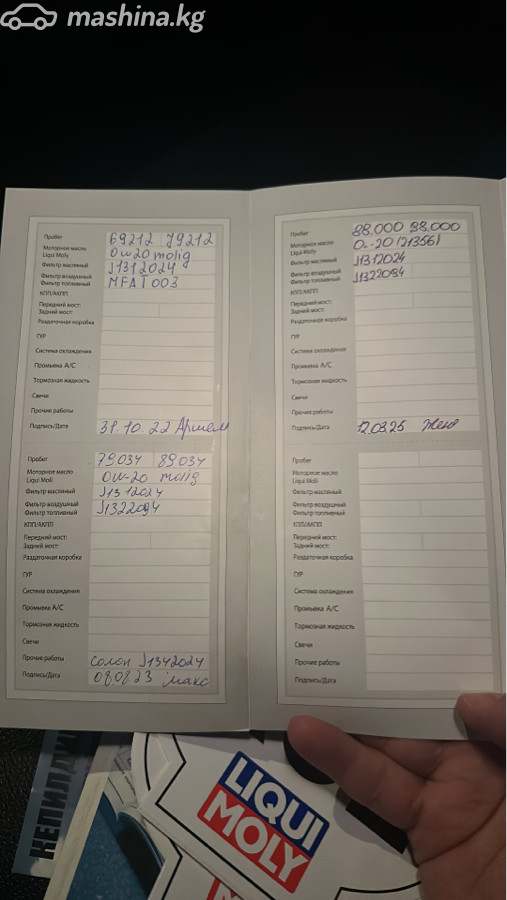 mashina.kg
Пробег 69212 79212
Моторное масло Liqui Moly 0w20 molig
Фильтр масляный J1312024
Фильтр воздушный
Фильтр топливный MFAT003
КПП/АКПП
Передний мост:
Задний мост:
Раздаточная коробка
ГУР
Система охлаждения
Промывка А/С
Тормозная жидкость
Свечи
Прочие работы
Подпись/Дата 31.10.22
Пробег 79034 89034
Моторное масло Liqui Moli 0w-20 molig
Фильтр масляный J1312024
Фильтр воздушный J1322094
Фильтр топливный
КПП/АКПП
Передний мост:
Задний мост:
Раздаточная коробка
ГУР
Система охлаждения
Промывка А/С
Тормозная жидкость
Свечи
Прочие работы салон J1342024
Подпись/Дата 08.08.23 макс
Пробег 88.000 98.000
Моторное масло Liqui Moly 0.-20 (21356)
Фильтр масляный J1312024
Фильтр воздушный J1322094
Фильтр топливный
КПП/АКПП
Передний мост:
Задний мост:
Раздаточная коробка
ГУР
Система охлаждения
Промывка А/С
Тормозная жидкость
Свечи
Прочие работы
Подпись/Дата 12.03.25 Женя
Пробег
Моторное масло
Liqui Moli
Фильтр масляный
Фильтр воздушный
Фильтр топливный
КПП/АКПП
Передний мост:
Задний мост:
Раздаточная коробка
ГУР
Система охлаждения
Промывка А/С
Тормозная жидкость
Свечи
Прочие работы
Подпись/Дата
LIQUI
MOLY